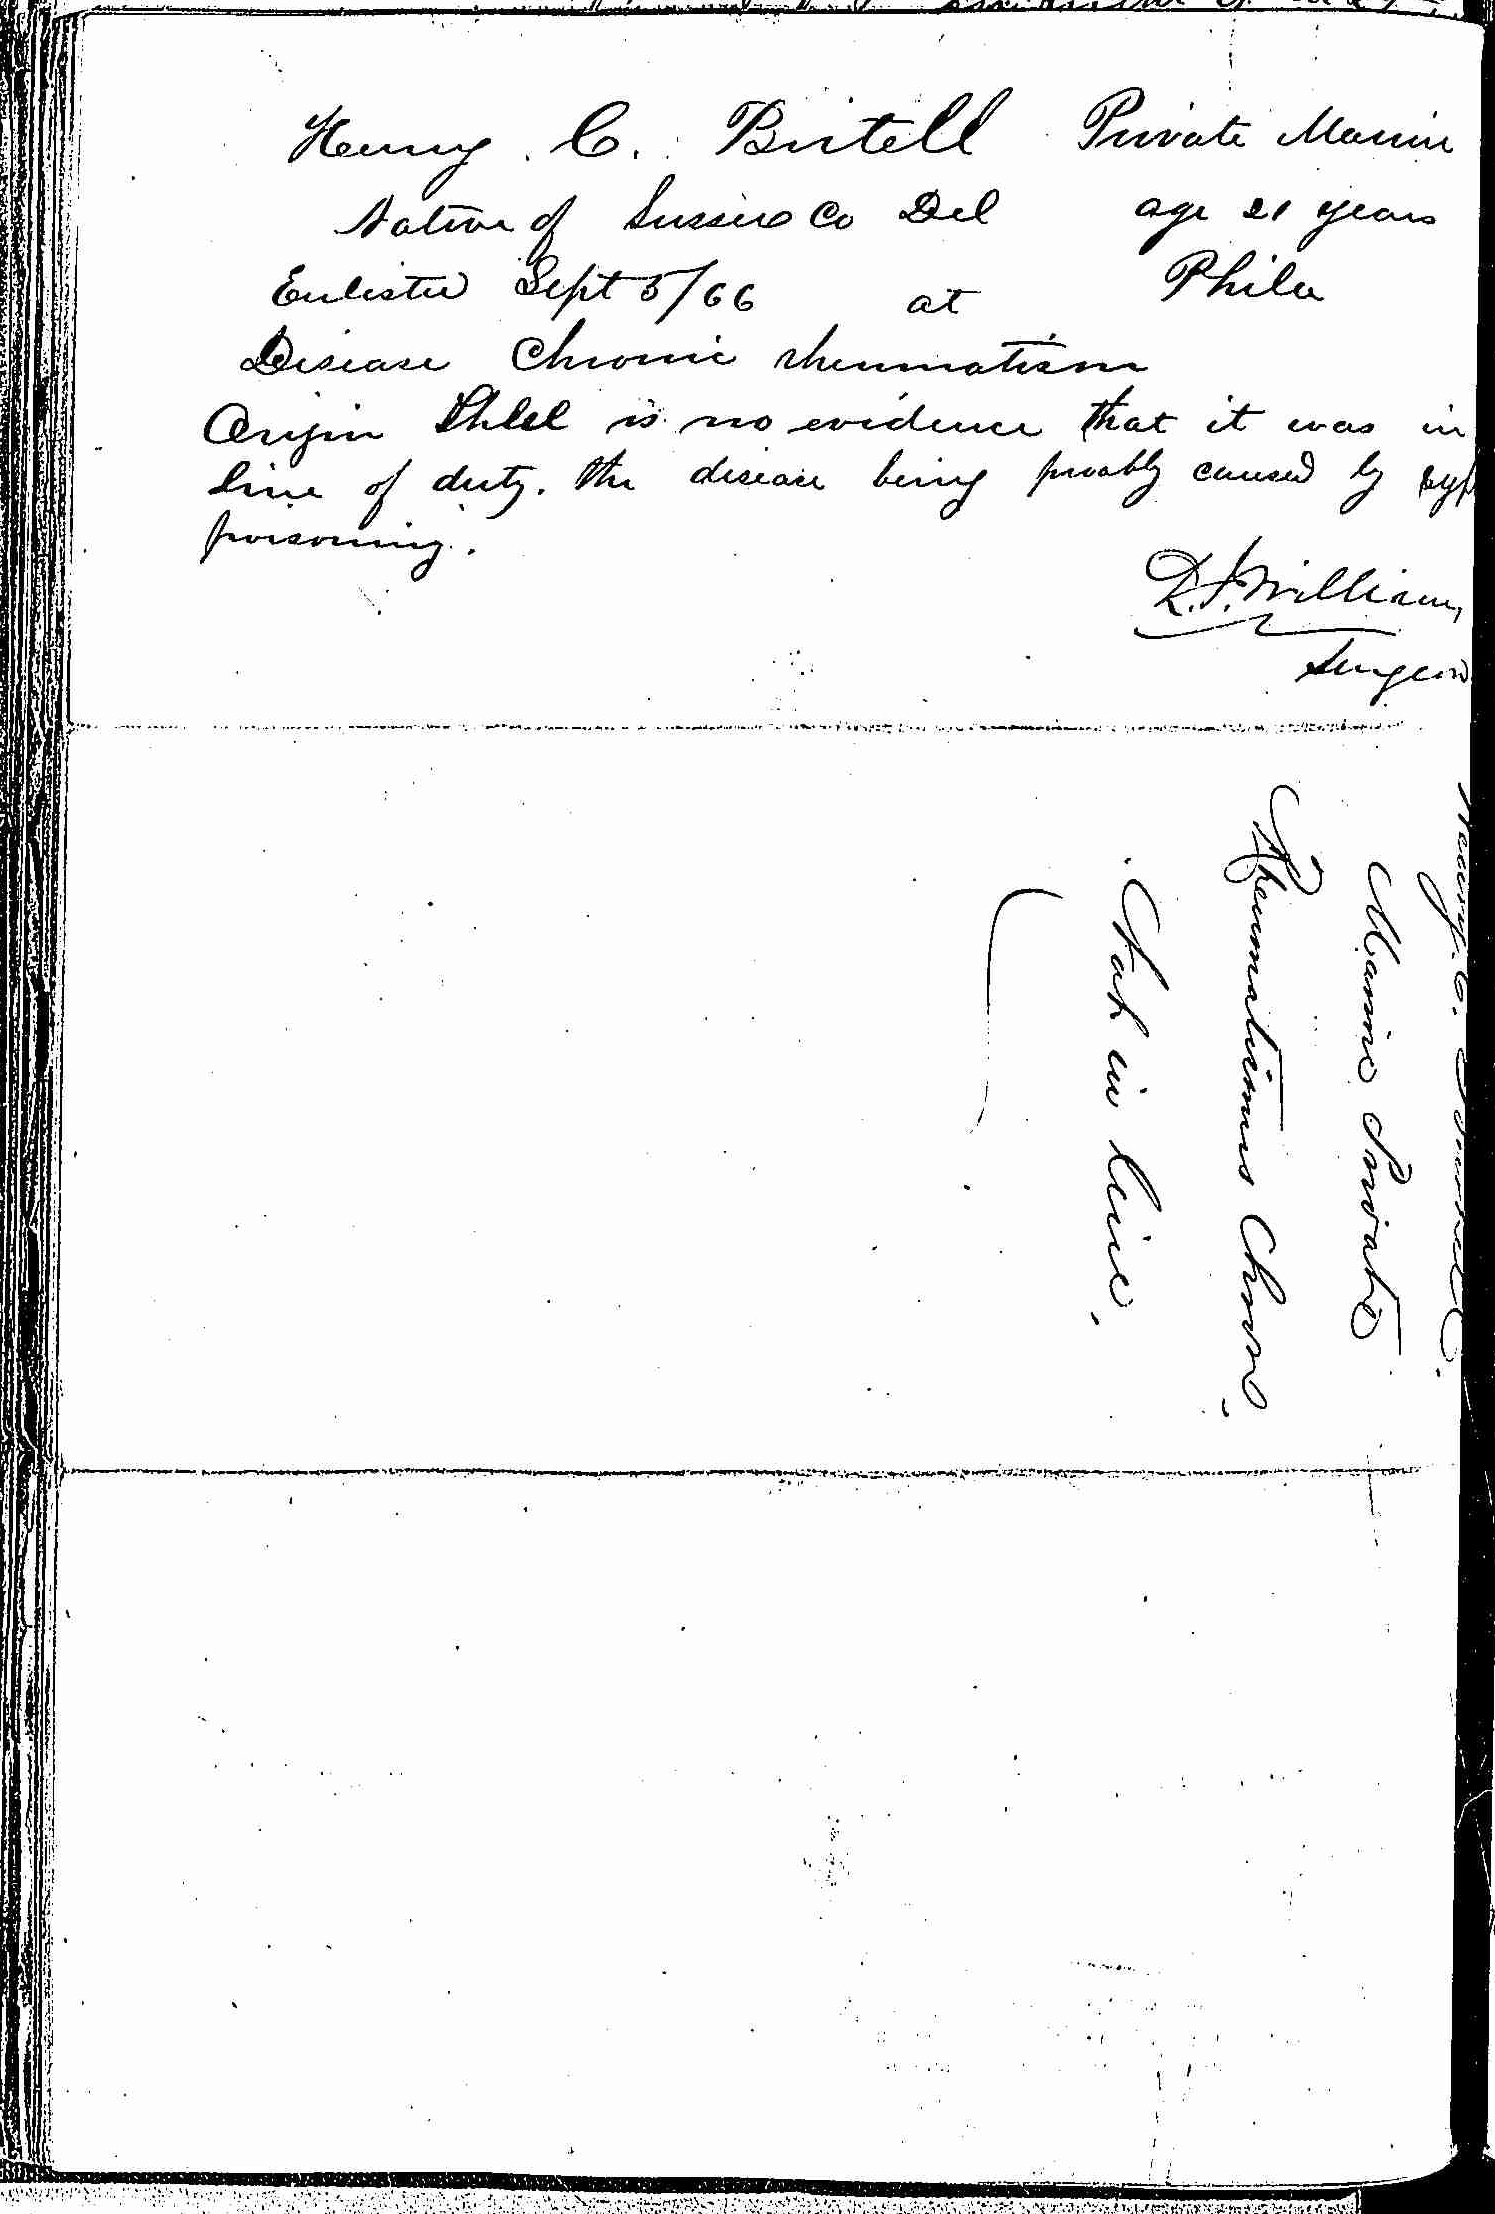 Henry C. Birtell Private Marine
Native of Sussex Co Del age 21 years
Enlisted Sept 5/66 at Phila
Disease Chronic rheumatism
Origin There is no evidence that it was in
line of duty. The disease being proably caused by syph
poisoning.
Williams
Surgeon
Henry C.
Marine Private
Rheumatismus Chron.
Not in line.